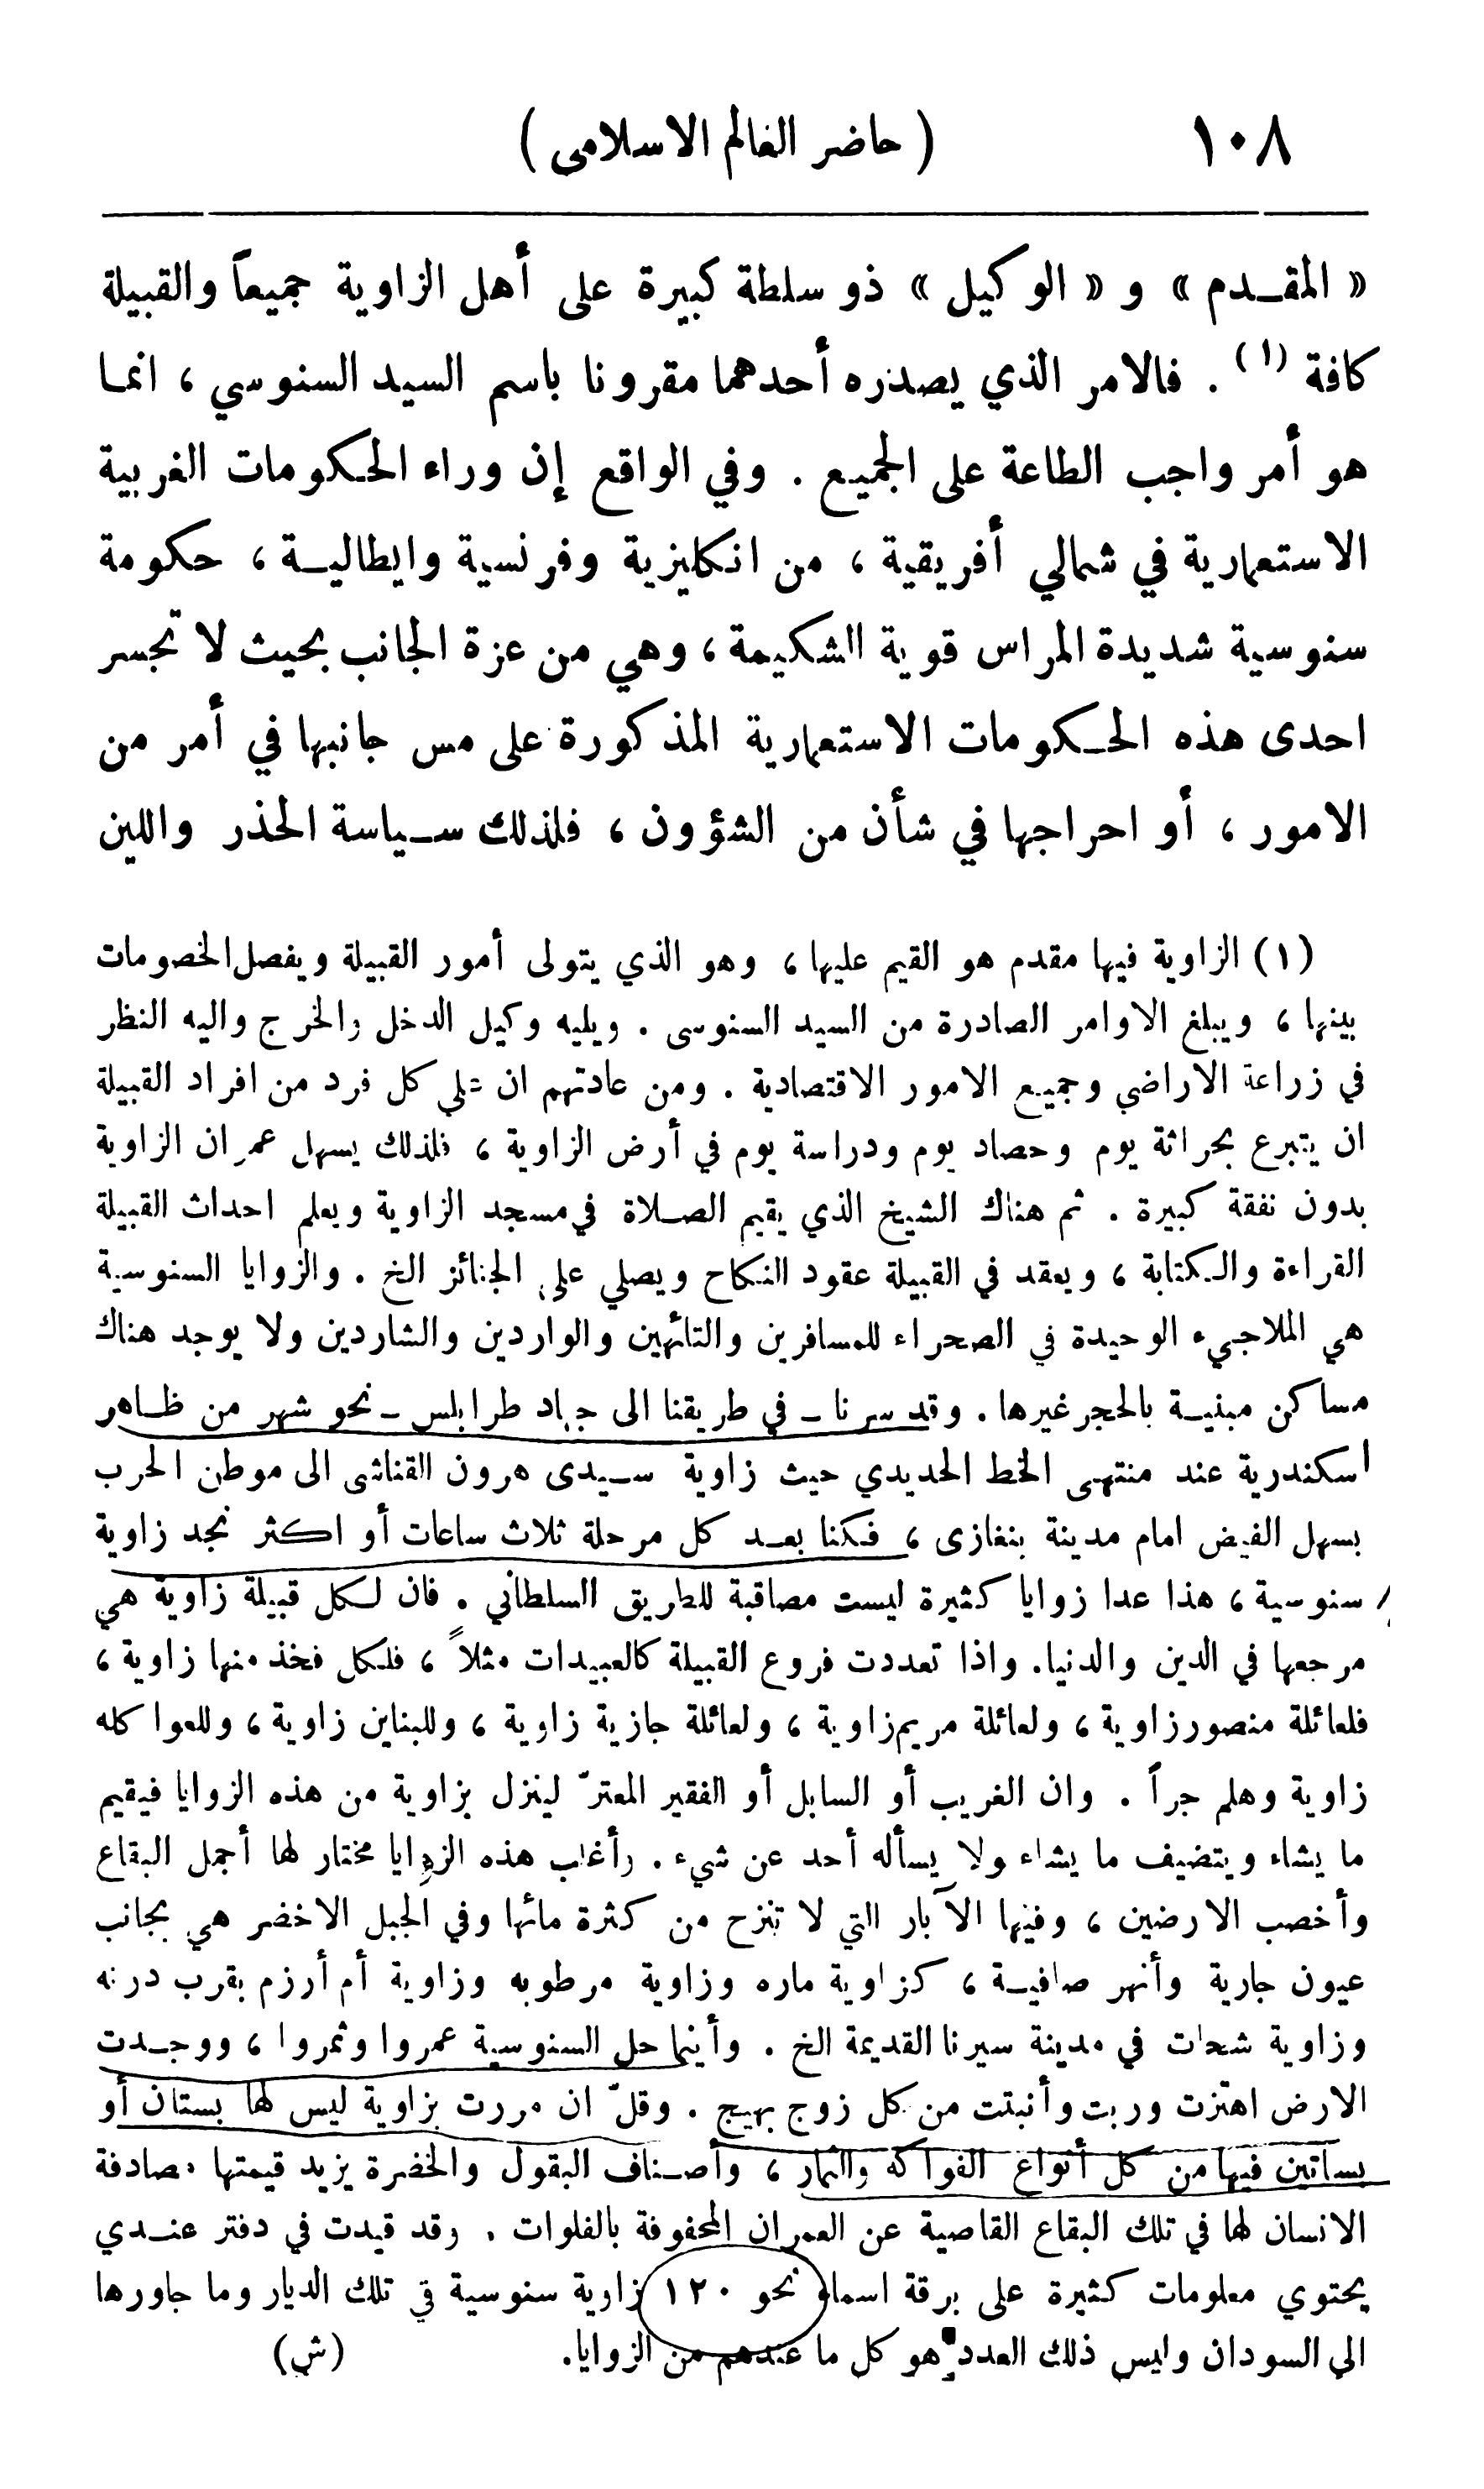 ١٠٨ ( حاضر العالم الاسلامى )
« المقدم » و « الوكيل » ذو سلطة كبيرة على أهل الزاوية جميعاً والقبيلة
كافة (١) . فالامر الذي يصدره أحدهما مقرونا باسم السيد السنوسي ، انما
هو أمر واجب الطاعة على الجميع . وفي الواقع إن وراء الحكومات الغربية
الاستعمارية في شمالي أفريقية ، من انكليزية وفرنسية وايطالية ، حكومة
سنوسية شديدة المراس قوية الشكيمة ، وهي من عزة الجانب بحيث لا تجسر
احدى هذه الحكومات الاستعمارية المذكورة على مس جانبها في أمر من
الامور ، أو احراجها في شأن من الشؤون ، فلذلك سياسة الحذر واللين
(١) الزاوية فيها مقدم هو القيم عليها ، وهو الذي يتولى أمور القبيلة ويفصل الخصومات
بينها ، ويبلغ الاوامر الصادرة من السيد السنوسى . ويليه وكيل الدخل والخرج واليه النظر
في زراعة الاراضي وجميع الامور الاقتصادية . ومن عادتهم ان على كل فرد من افراد القبيلة
ان يتبرع بحراثة يوم وحصاد يوم ودراسة يوم في أرض الزاوية ، فلذلك يسهل عمران الزاوية
بدون نفقة كبيرة . ثم هناك الشيخ الذي يقيم الصلاة في مسجد الزاوية ويعلم احداث القبيلة
القراءة والكتابة ، ويعقد في القبيلة عقود النكاح ويصلي على الجنائز الخ . والزوايا السنوسية
هي الملاجيء الوحيدة في الصحراء للمسافرين والتائهين والواردين والشاردين ولا يوجد هناك
مساكن مبنية بالحجر غيرها . وقد سرنا ــ في طريقنا الى جهاد طرابلس ــ نحو شهر من ظاهر
اسكندرية عند منتهى الخط الحديدي حيث زاوية سيدى هرون القناشى الى موطن الحرب
بسهل الفيض امام مدينة بنغازى ، فكنا بعد كل مرحلة ثلاث ساعات أو اكثر نجد زاوية
سنوسية ، هذا عدا زوايا كثيرة ليست مصاقبة للطريق السلطاني . فان لكل قبيلة زاوية هي
مرجعها في الدين والدنيا. واذا تعددت فروع القبيلة كالعبيدات مثلاً ، فلكل فخذ منها زاوية ،
فلعائلة منصور زاوية ، ولعائلة مريم زاوية ، ولعائلة جازية زاوية ، وللبناين زاوية ، وللعواكله
زاوية وهلم جراً . وان الغريب أو السابل أو الفقير المعترّ لينزل بزاوية من هذه الزوايا فيقيم
ما يشاء ويتضيف ما يشاء ولا يسأله أحد عن شيء . وأغلب هذه الزوايا مختار لها أجمل البقاع
وأخصب الارضين ، وفيها الآبار التي لا تنزح من كثرة مائها وفي الجبل الاخضر هي بجانب
عيون جارية وأنهر صافية ، كزاوية ماره وزاوية مرطوبه وزاوية أم أرزم بقرب درنه
وزاوية شحات في مدينة سيرنا القديمة الخ . وأينما حل السنوسية عمروا وثمروا ، ووجدت
الارض اهتزت وربت وأنبتت من كل زوج بهيج . وقلّ ان مررت بزاوية ليس لها بستان أو
بساتين فيها من كل أنواع الفواكه والثمار ، وأصناف البقول والخضرة يزيد قيمتها مصادفة
الانسان لها في تلك البقاع القاصية عن العمران المحفوفة بالفلوات . وقد قيدت في دفتر عندي
يحتوي معلومات كثيرة على برقة اسماء نحو ١٢٠ زاوية سنوسية في تلك الديار وما جاورها
الى السودان وليس ذلك العدد هو كل ما عندهم من الزوايا. (ش)